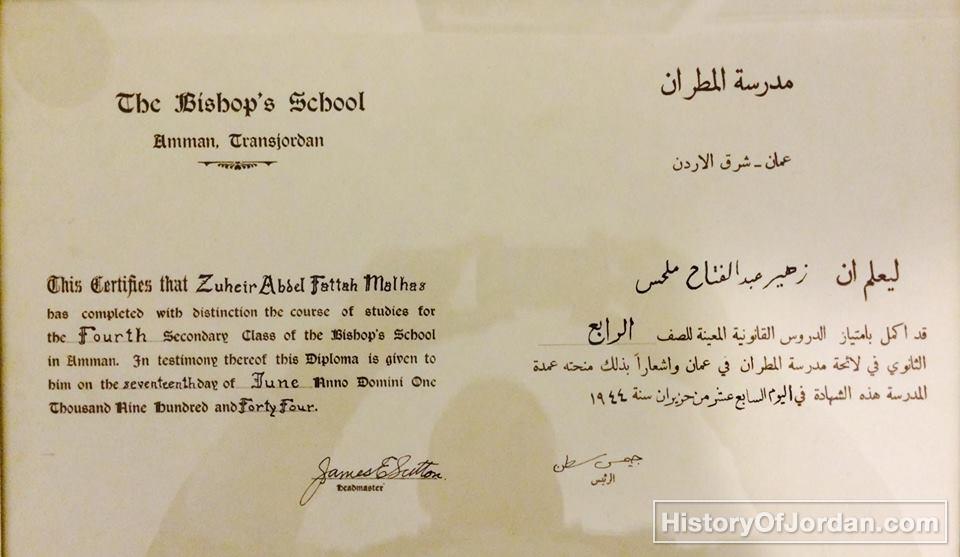 The Bishop's School
Amman, Transjordan
This Certifies that Zuheir Abdel Fattah Malhas
has completed with distinction the course of studies for
the Fourth Secondary Class of the Bishop's School
in Amman. In testimony thereof this Diploma is given to
him on the seventeenth day of June Anno Domini One
Thousand Nine Hundred and Forty Four.
James E Sutton
Headmaster
مدرسة المطران
عمان - شرق الاردن
ليعلم ان زهير عبد الفتاح ملحس
قد اكمل بامتياز الدروس القانونية المعينة للصف الرابع
الثانوي في لائحة مدرسة المطران في عمان واشعاراً بذلك منحته عمدة
المدرسة هذه الشهادة في اليوم السابع عشر من حزيران سنة ١٩٤٤
جيمس سطن
الرئيس
HistoryOfJordan.com